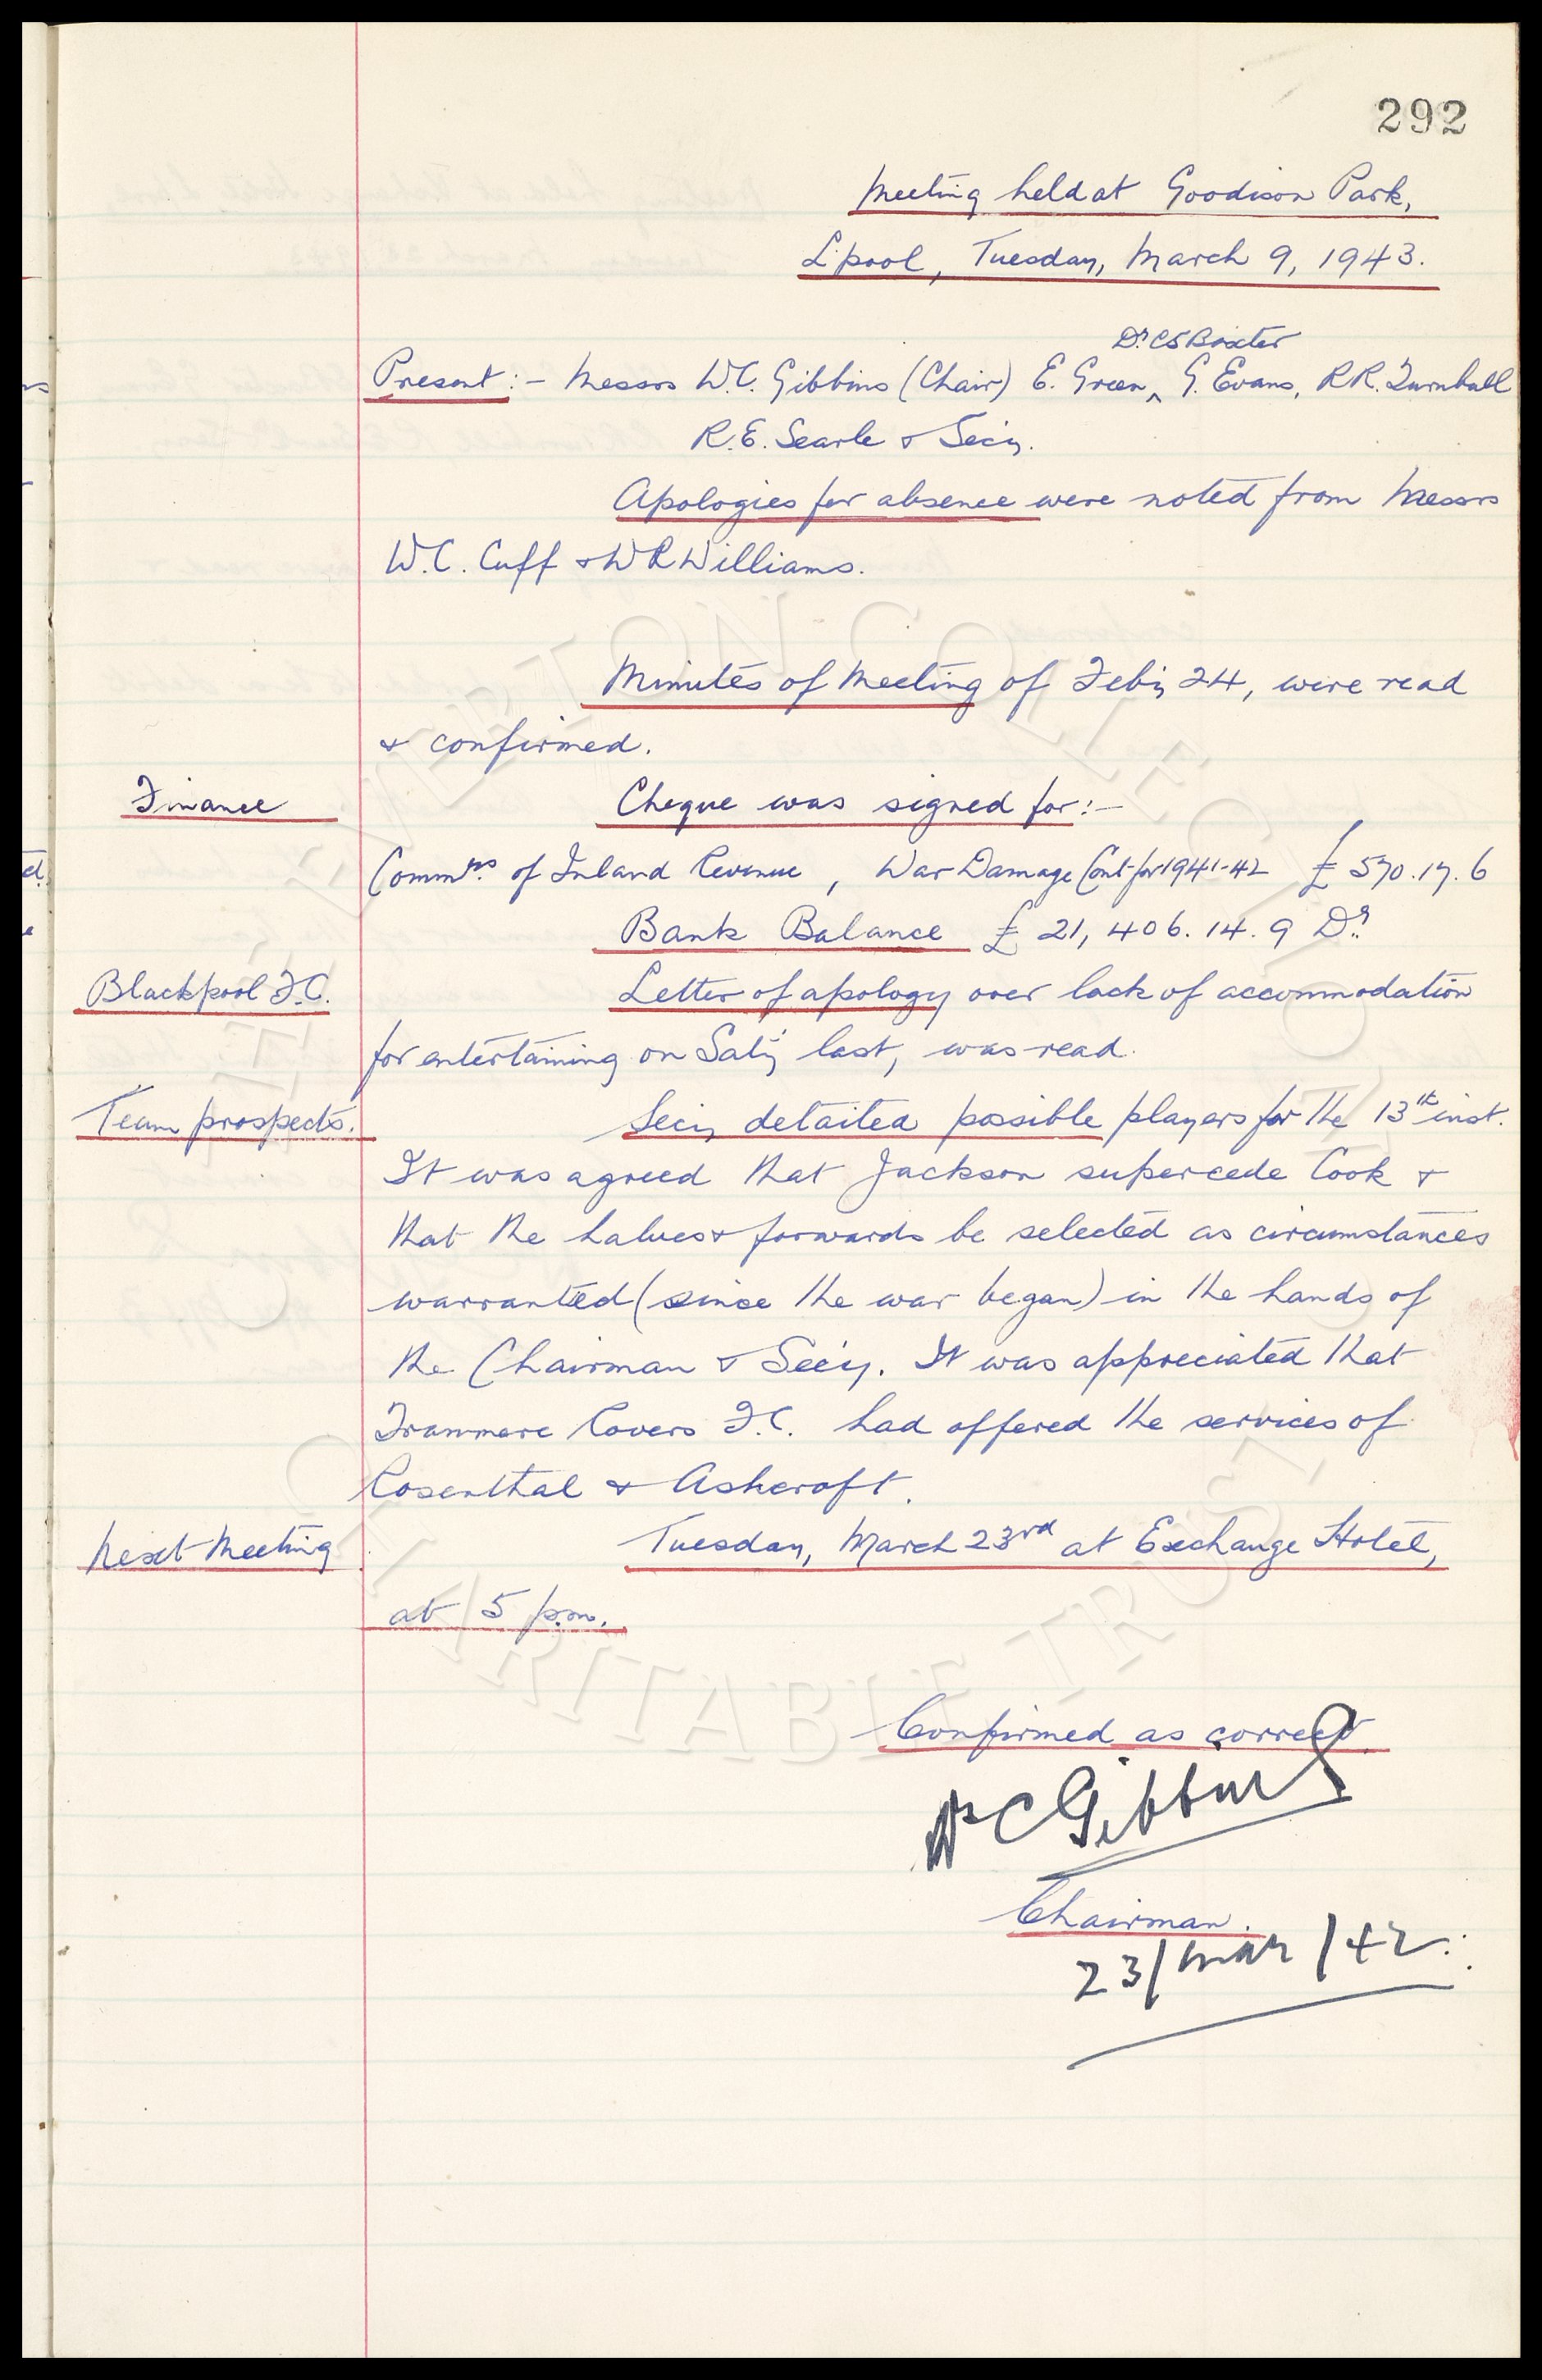 292
Meeting held at Goodison Park,
L'pool, Tuesday, March 9, 1943.
Dr. C S Baxter
Present:- Messrs W.C. Gibbins (Chair) E. Green, ^ G. Evans, R.R. Turnbull
R.E. Searle & Secy.
Apologies for absence were noted from Messrs
W.C. Cuff & W R Williams.
Minutes of Meeting of Feby 24, were read
& confirmed.
Finance Cheque was signed for:-
Commrs. of Inland Revenue, War Damage Cont. for 1941-42 £ 570.17.6
Bank Balance £ 21,406.14.9 Dr.
Blackpool F.C. Letter of apology over lack of accommodation
for entertaining on Saty last, was read.
Team prospects. Secy detailed possible players for the 13th inst.
It was agreed that Jackson supercede Cook &
that the halves & forwards be selected as circumstances
warranted (since the war began) in the hands of
the Chairman & Secy. It was appreciated that
Tranmere Rovers F.C. had offered the services of
Rosenthal & Ashcroft.
Next Meeting Tuesday, March 23rd at Exchange Hotel,
at 5 p.m.
Confirmed as correct
W C Gibbins
Chairman.
23/Mar/42.
EVERTON COLLECTION
CHARITABLE TRUST